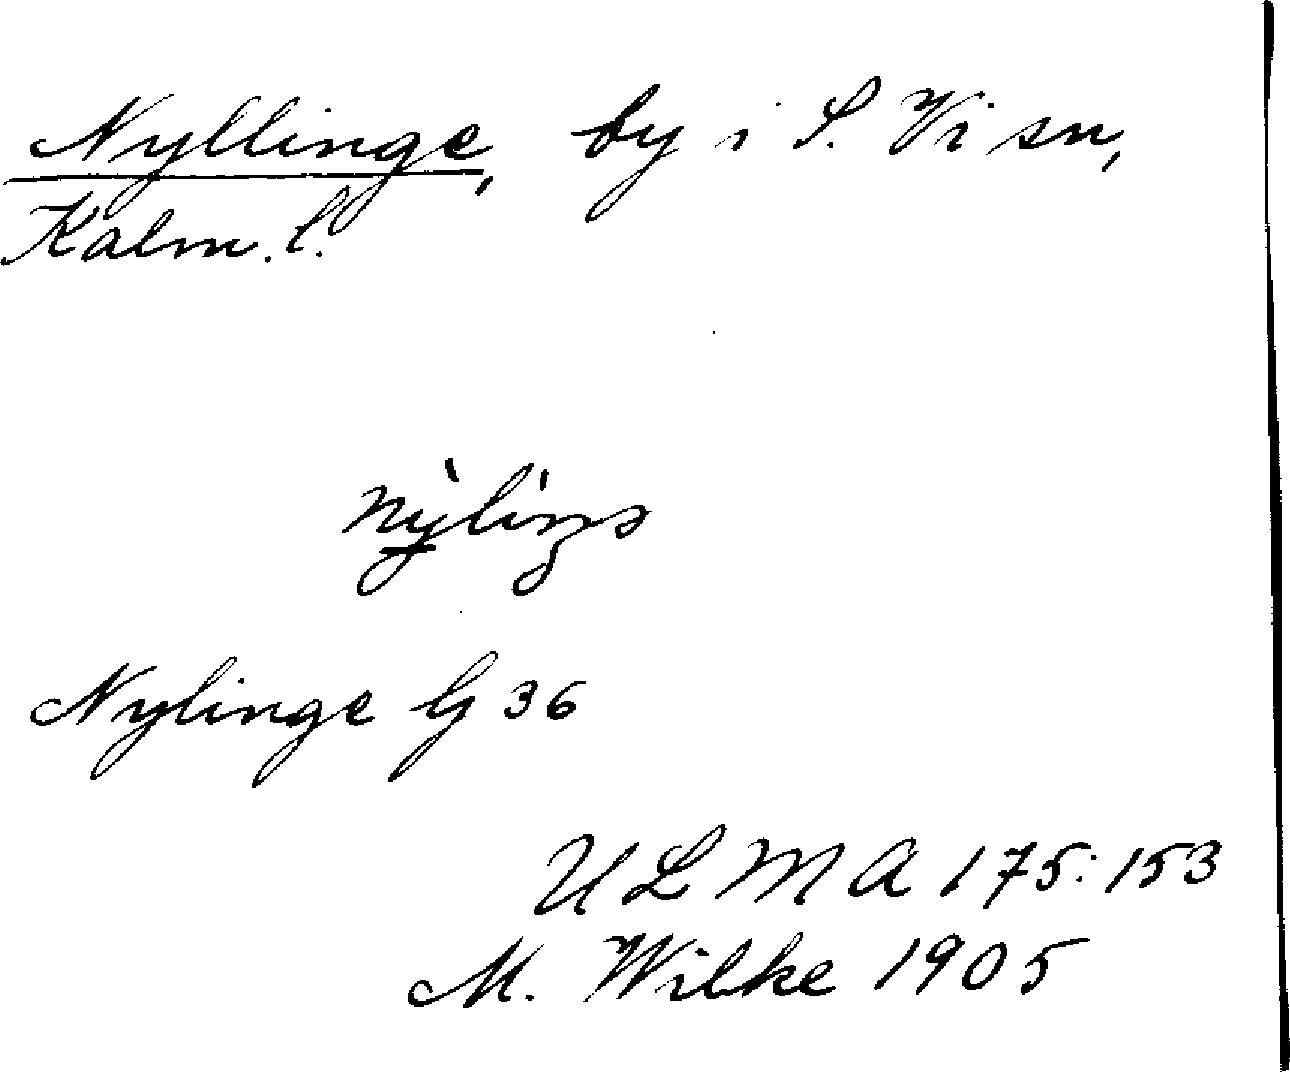 Nyllinge, by i S. Vi sn,
Kalm. l.
Nylinge G 36
ULMA 175:153
M. Wilke 1905